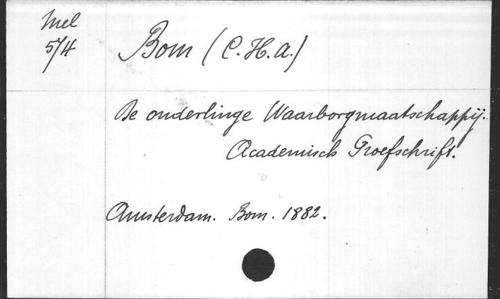 Mel
574
Bom (C. H. A.)
De onderlinge Waarborgmaatschappij.
Academisch Proefschrift.
Amsterdam. Bom. 1882.